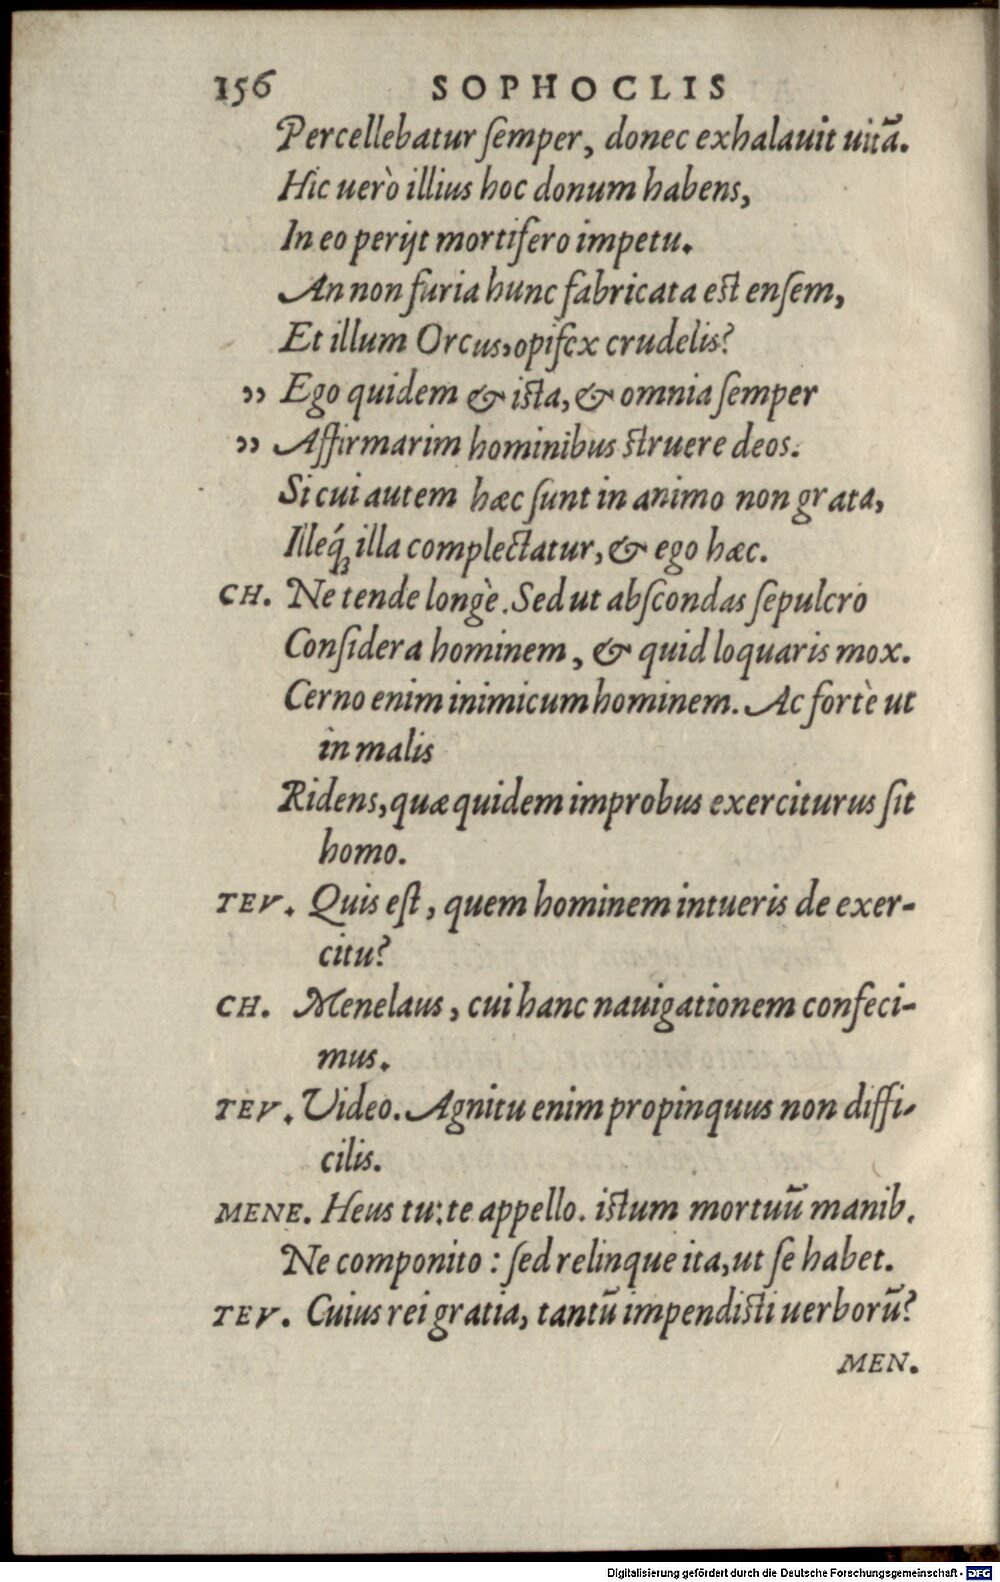 156 SOPHOCLIS
Percellebatur ſemper, donec exhalauit uitã.
Hic uerò illius hoc donum habens,
In eo perijt mortifero impetu.
An non furia hunc fabricata eſt enſem,
Et illum Orcus, opifex crudelis?
” Ego quidem & iſta, & omnia ſemper
” Affirmarim hominibus ſtruere deos.
Si cui autem hæc ſunt in animo non grata,
Illeq́; illa complectatur, & ego hæc.
CH. Ne tende longè. Sed ut abſcondas ſepulcro
Conſidera hominem, & quid loquaris mox.
Cerno enim inimicum hominem. Ac fortè ut
in malis
Ridens, quæ quidem improbus exerciturus ſit
homo.
TEV. Quis eſt, quem hominem intueris de exer-
citu?
CH. Menelaus, cui hanc nauigationem confeci-
mus.
TEV. Video. Agnitu enim propinquus non diffi-
cilis.
MENE. Heus tu: te appello. iſtum mortuũ manib.
Ne componito: ſed relinque ita, ut ſe habet.
TEV. Cuius rei gratia, tantũ impendiſti uerborũ?
MEN.
Digitalisierung gefördert durch die Deutsche Forschungsgemeinschaft - DFG